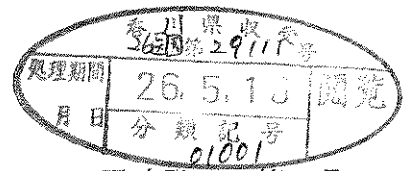 香川県収受
26 第29111号
処理期間 26.5.1 閲覧
月日 分類記号
01001